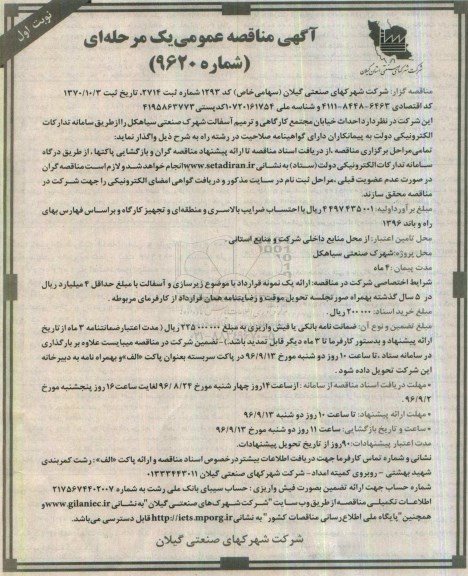 نوبت اول
آگهی مناقصه عمومی یک مرحله‌ای
(شماره ۹۶۲۰)
شرکت شهرکهای صنعتی استان گیلان
مناقصه گزار: شرکت شهرکهای صنعتی گیلان (سهامی خاص) کد ۱۲۹۳ شماره ثبت ۲۷۱۴، تاریخ ثبت ۱۳۷۰/۱۰/۳
کد اقتصادی ۶۴۶۳-۸۴۴۸-۴۱۱۱ و شناسه ملی ۱۰۷۲۰۱۶۱۷۵۴ کدپستی ۴۱۹۵۸۶۳۷۷۳
این شرکت در نظر دارد احداث خیابان مجتمع کارگاهی و ترمیم آسفالت شهرک صنعتی سیاهکل را از طریق سامانه تدارکات
الکترونیکی دولت به پیمانکاران دارای گواهینامه صلاحیت در رشته راه به شرح ذیل واگذار نماید:
تمامی مراحل برگزاری مناقصه، از دریافت اسناد مناقصه تا ارائه پیشنهاد مناقصه گران و بازگشایی پاکتها، از طریق درگاه
سامانه تدارکات الکترونیکی دولت (ستاد) به نشانی www.setadiran.ir انجام خواهد شد و لازم است مناقصه گران
در صورت عدم عضویت قبلی، مراحل ثبت نام در سایت مذکور و دریافت گواهی امضای الکترونیکی را جهت شرکت در
مناقصه محقق سازند.
مبلغ برآورد اولیه: ۴۴۹۷۴۳۵۰۰۱ ریال با احتساب ضرایب بالاسری و منطقه‌ای و تجهیز کارگاه و براساس فهارس بهای
راه و باند ۱۳۹۶
محل تامین اعتبار: از محل منابع داخلی شرکت و منابع استانی.
محل پروژه: شهرک صنعتی سیاهکل
مدت پیمان: ۴ ماه
شرایط اختصاصی شرکت در مناقصه: ارائه یک نمونه قرارداد با موضوع زیرسازی و آسفالت با مبلغ حداقل ۴ میلیارد ریال
در ۵ سال گذشته بهمراه صورتجلسه تحویل موقت و رضایتنامه همان قرارداد از کارفرمای مربوطه.
مبلغ خرید اسناد: ۲۰۰۰۰۰ ریال.
مبلغ تضمین و نوع آن: ضمانت نامه بانکی یا فیش واریزی به مبلغ ۲۲۵۰۰۰۰۰۰ ریال (مدت اعتبار ضمانتنامه ۳ ماه از تاریخ
ارائه پیشنهاد و بدستور کارفرما تا ۳ ماه دیگر قابل تمدید باشد) - تضمین شرکت در مناقصه میبایست علاوه بر بارگذاری
در سامانه ستاد، تا ساعت ۱۰ روز دو شنبه مورخ ۹۶/۹/۱۳ در پاکت سربسته بعنوان پاکت «الف» و بهمراه نامه به دبیرخانه
این شرکت تحویل داده شود.
• مهلت دریافت اسناد مناقصه از سامانه: از ساعت ۱۴ روز چهار شنبه مورخ ۹۶/۸/۲۴ لغایت ساعت ۱۶ روز پنجشنبه مورخ
۹۶/۹/۲
• مهلت ارائه پیشنهاد: تا ساعت ۱۰ روز دو شنبه ۹۶/۹/۱۳
• ساعت و تاریخ بازگشایی: ساعت ۱۱ روز دو شنبه مورخ ۹۶/۹/۱۳
مدت اعتبار پیشنهادات: ۹۰ روز از تاریخ تحویل پیشنهادات.
نشانی و شماره تماس کارفرما جهت دریافت اطلاعات بیشتر در خصوص اسناد مناقصه و ارائه پاکت «الف»: رشت کمربندی
شهید بهشتی - روبروی کمیته امداد - شرکت شهرکهای صنعتی گیلان ۰۱۳۳۳۴۴۳۰۱۱
شماره حساب جهت ارائه تضمین بصورت فیش واریزی: حساب سیبای بانک ملی رشت به شماره ۲۱۷۵۶۷۴۴۰۲۰۰۷
اطلاعات تکمیلی مناقصه از طریق وب سایت "شرکت شهرکهای صنعتی گیلان" به نشانی www.gilaniec.ir و
همچنین "پایگاه ملی اطلاع رسانی مناقصات کشور" به نشانی http://iets.mporg.ir قابل دسترسی می‌باشد.
شرکت شهرکهای صنعتی گیلان